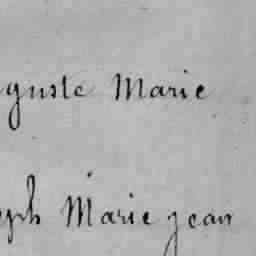 guste Marie
ph Marie jean